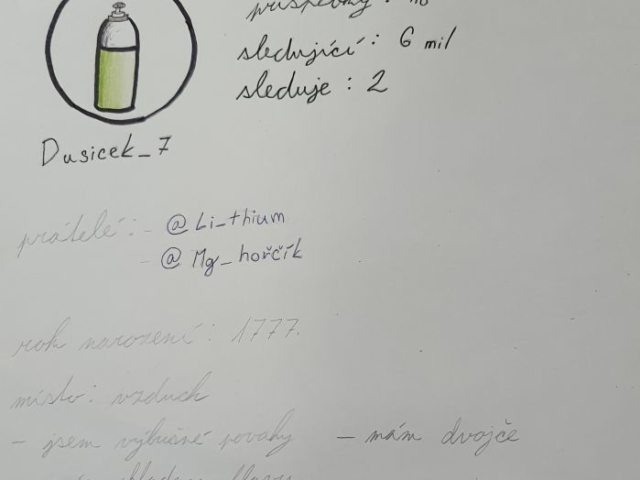 příspěvky :
sledující : 6 mil
sleduje : 2
Dusicek_7
přátelé : - @Li_thium
- @Mg_hořčík
rok narození : 1777.
místo : vzduch
- jsem výbušné povahy - mám dvojče